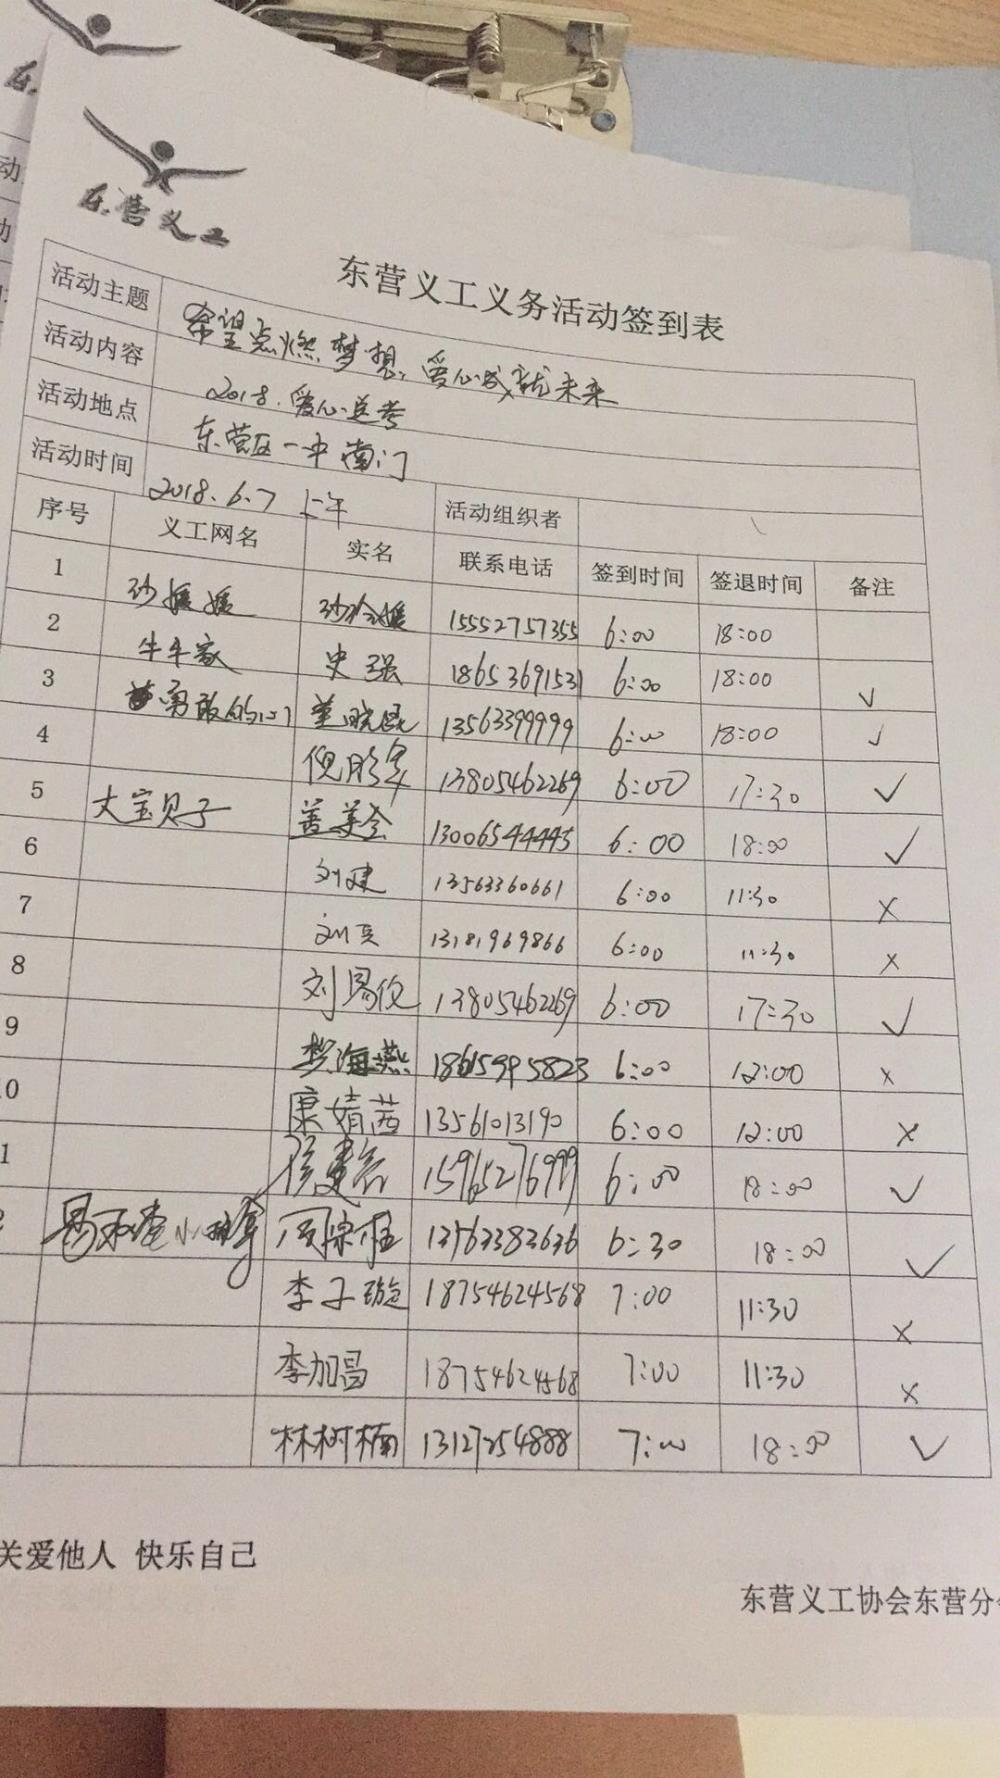 东营义工
东营义工义务活动签到表
活动主题 希望点燃梦想,爱心成就未来
活动内容 2018.爱心送考
活动地点 东营区一中南门
活动时间 2018.6.7 上午 活动组织者
序号 义工网名 实名 联系电话 签到时间 签退时间 备注
1 15552757355 6:00 18:00
2 牛牛家 史强 18653691531 6:00 18:00 ✓
3 勇敢的心 13563399999 6:00 18:00 ✓
4 13805462269 6:00 17:30 ✓
5 大宝贝子 13006544445 6:00 18:00 ✓
6 刘建 13563360661 6:00 11:30 ×
7 刘兵 13181969866 6:00 11:30 ×
8 刘易仪 13805462269 6:00 17:30 ✓
9 海燕 18615995823 6:00 12:00 ×
0 康婧茜 13561013190 6:00 12:00 ×
1 15965276999 6:00 18:00 ✓
13563383636 6:30 18:00 ✓
李子璇 18754624568 7:00 11:30 ×
李加昌 18754624568 7:00 11:30 ×
林树楠 13127254888 7:00 18:00 ✓
关爱他人 快乐自己
东营义工协会东营分